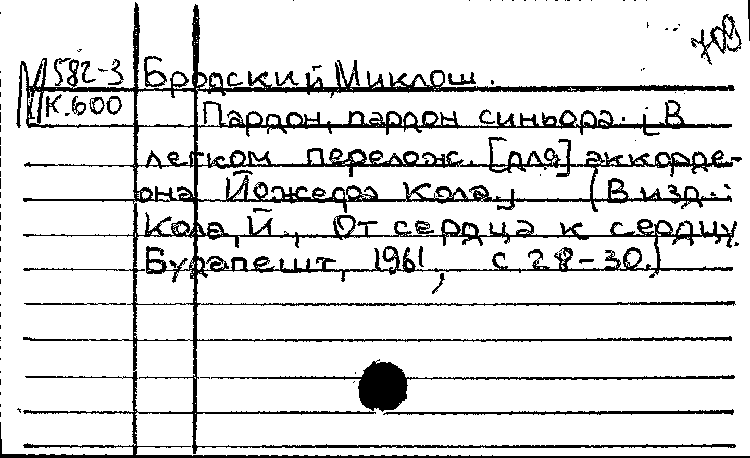 709
М 582-3 Бродский, Миклош.
К.600 Пардон, пардон синьора. [В
легком перелож. [для] аккорде-
она Йожефа Кола.] (В изд.:
Кола, Й., От сердца к сердцу
Будапешт, 1961, с 28-30.)